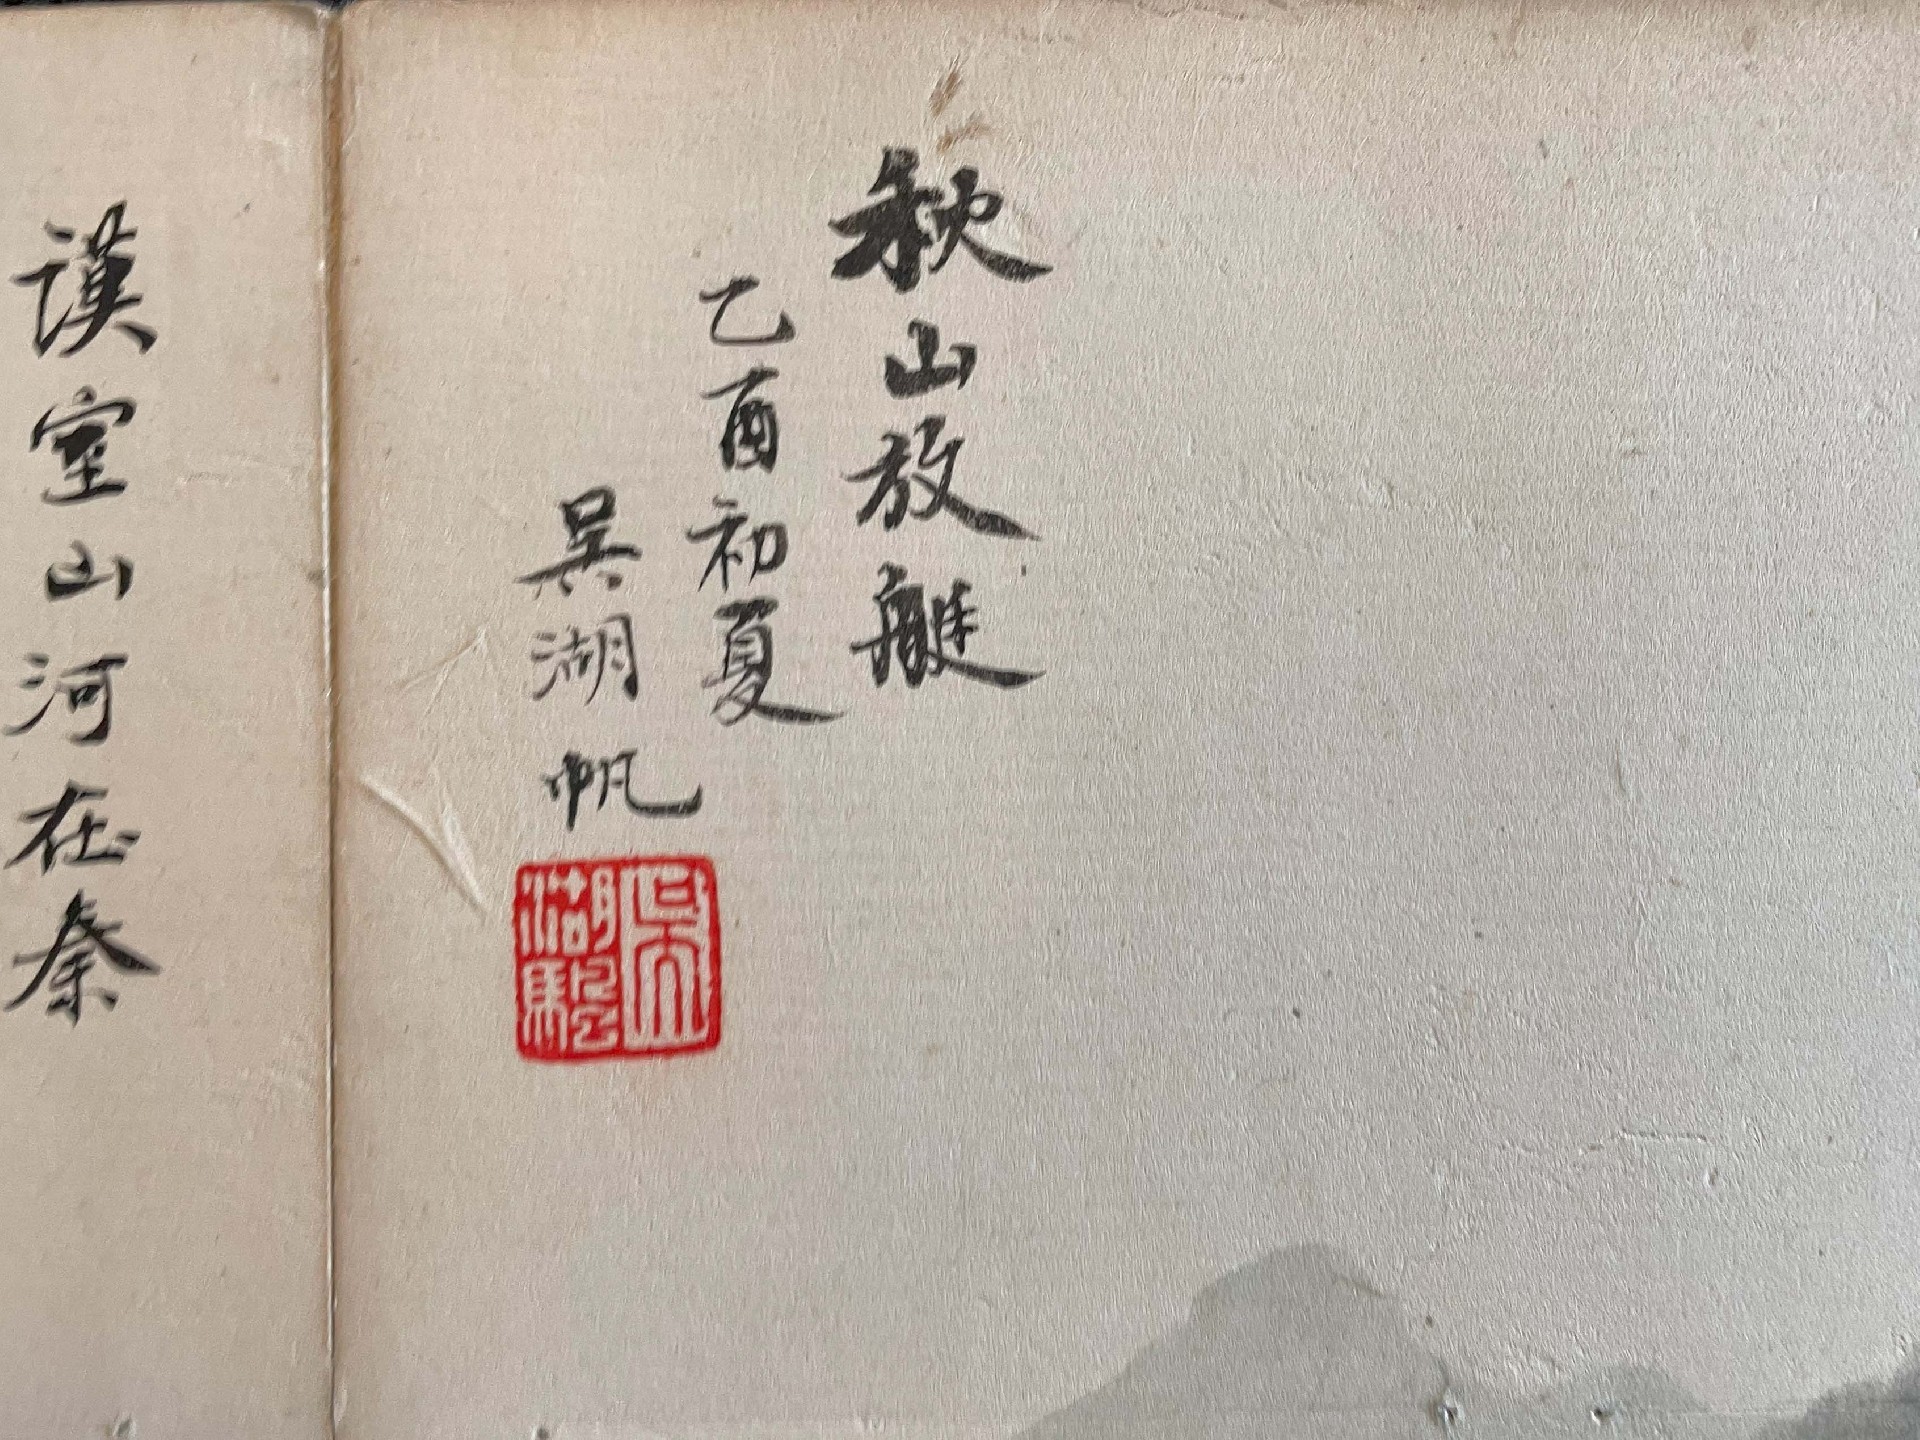 秋山放艇
乙酉初夏
吳湖帆
吳湖驅
漢室山河在秦